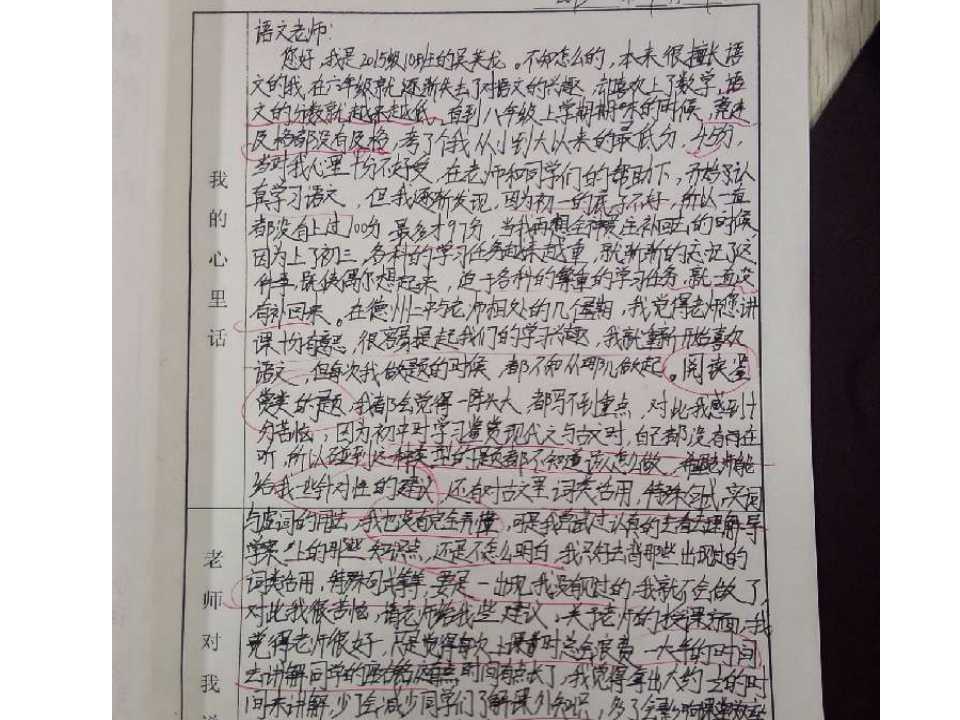 语文老师:
您好,我是2015级10班的吴英龙。不知怎么的,本来很擅长语
文的我,在六年级就逐渐失去了对语文的兴趣,却喜欢上了数学,语
文的分数就越来越低。直到八年级上学期期末的时候,竟连
及格都没有及格,考了个我从小到大以来的最低分,45分,
当时我心里十分不好受,在老师和同学们的帮助下,开始了认
真学习语文,但我逐渐发现,因为初一的底子不好,所以一直
都没有上过100分,最多才97分,当我再想全神贯注补回去的时候,
因为上了初三,各科的学习任务越来越重,就渐渐的忘记了这
件事,既使偶尔想起来,迫于各科的繁重的学习任务,就一直没
有补回来。在德州一中与老师相处的几个星期,我觉得老师您讲
课十分有意思,很容易提起我们的学习兴趣,我就重新开始喜欢
语文,但每次我做题的时候,都不知从哪儿做起。阅读鉴
赏类的题,我都会觉得一阵头大,都写不到重点,对此我感到十
分苦恼,因为初中时学习鉴赏现代文与古文时,自己都没有
听,所以碰到这种类型的题都不知道该怎么做,希望老师能
给我一些针对性的建议,还有对古文里词类活用,特殊句式,实词
与虚词的用法,我也没有完全弄懂,可是我尝试过认真的去看去理解导
学案上的那些知识点,还是不怎么明白,我只好去背那些出现过的
词类活用,特殊句式等等,要是一出现我没见过的,我就不会做了,
对此我很苦恼,请老师给我些建议。关于老师的授课方面,我
觉得老师很好,只是觉得每次上课时总会浪费一大半的时间
去讲解同学的 时间有点长了,我觉得拿出大约 的时
间来讲解,少了会减少同学们了解课外知识,多了会影响课堂
我的心里话
老师对我说